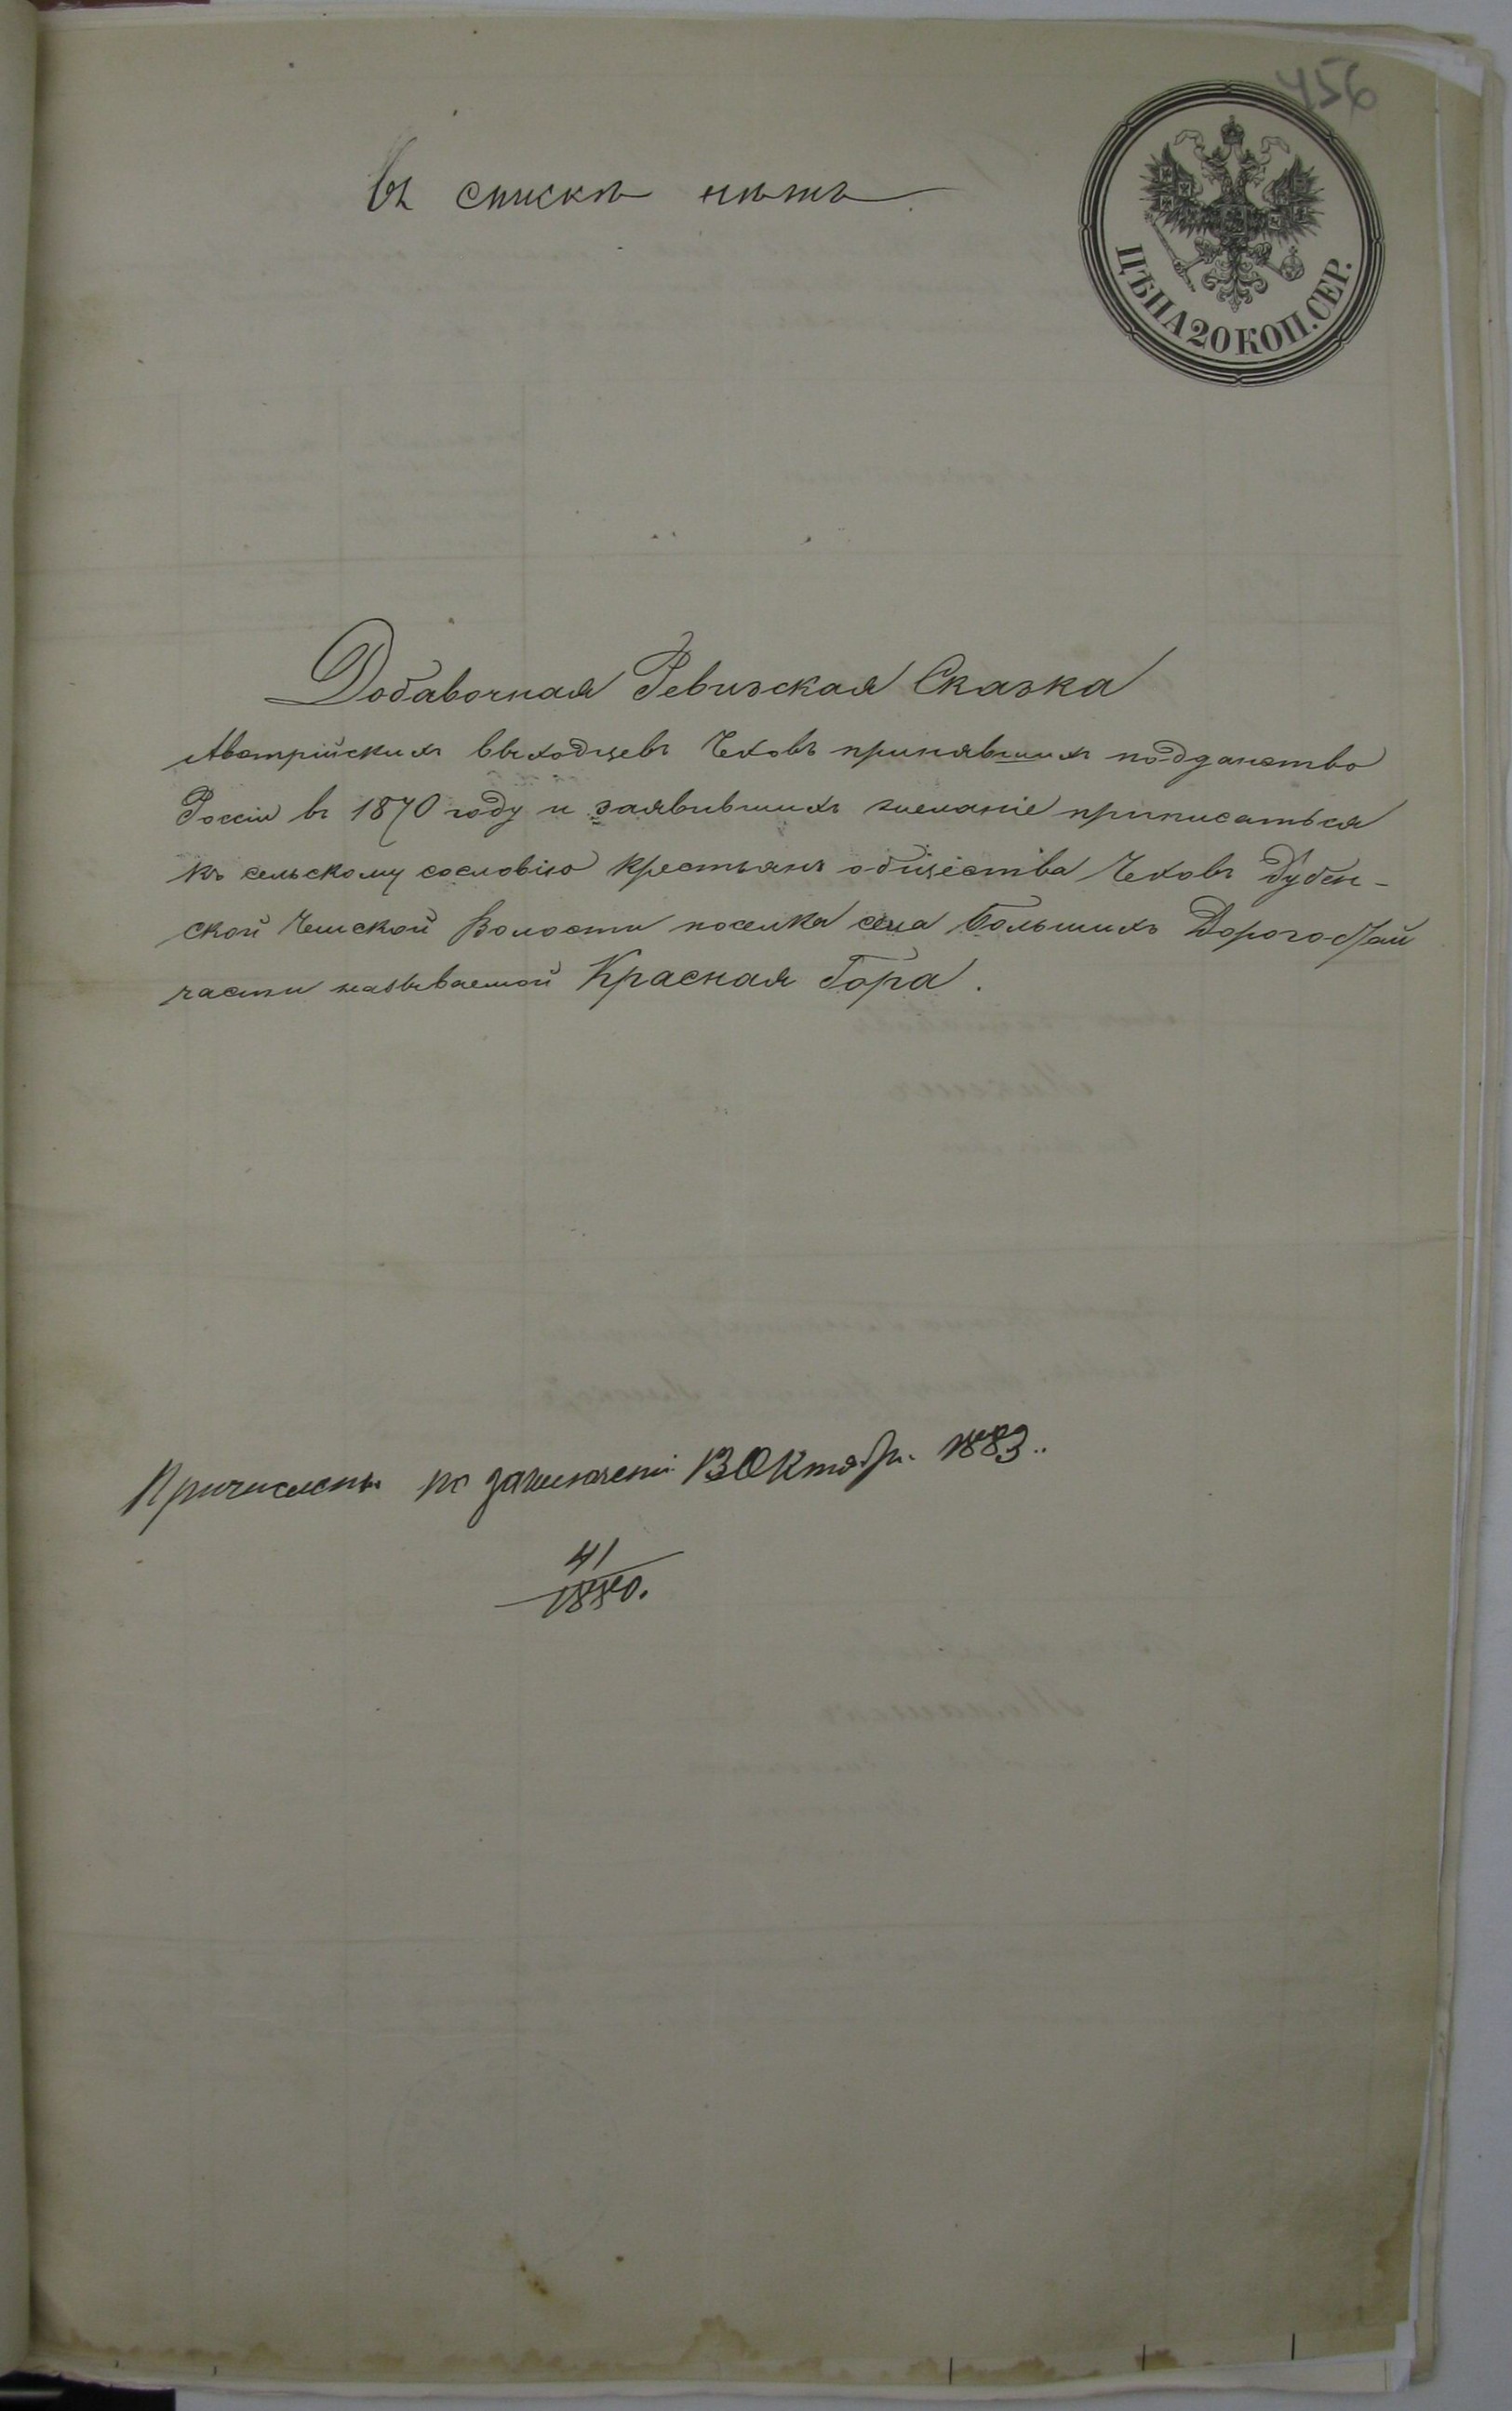 456
въ спискѣ нѣтъ
ЦѢНА 20 КОП. СЕР.
Добавочная Ревизская Сказка
Австрійскихъ выходцевъ Чеховъ принявшихъ подданство
Россіи въ 1870 году и заявившихъ желаніе приписаться
къ сельскому сословію крестьянъ общества Чеховъ Дубен-
ской Чешской Волости поселка села Большихъ Дорогостай
части называемой Красная Гора.
Причислены по заключенію 13 Октября 1883..
41
1880.